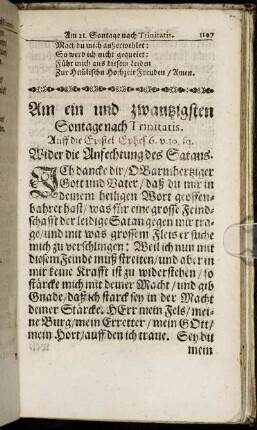 Am 21. Sontage nach Trinitatis. 1107
Mach du mich außerwehlet:
So werd ich nicht gequelet:
Führ mich aus diesem Leiden
Zur Himlischn Hochzeit Freuden / Amen.
Am ein und zwantzigsten
Sontage nach Trinitatis.
Auff die Epistel Ephes. 6. v. 10.
Wider die Anfechtung des Satans.
JCh dancke dir / O Barmhertziger
Gott und Vater / daß du mir in
deinem heiligen Wort geoffen-
bahret hast / was für eine grosse Feind-
schafft der leidige Satan gegen mir tra-
ge / und mit was grossem Fleis er suche
mich zu verschlingen: Weil ich nun mit
diesem Feinde muß streiten / und aber in
mir keine Krafft ist zu widerstehen / so
stärcke mich mit deiner Macht / und gib
Gnade / daß ich starck sey in der Macht
deiner Stärcke. HErr mein Fels / mei-
ne Burg / mein Erretter / mein GOtt /
mein Hort / auff den ich traue. Sey du
mein